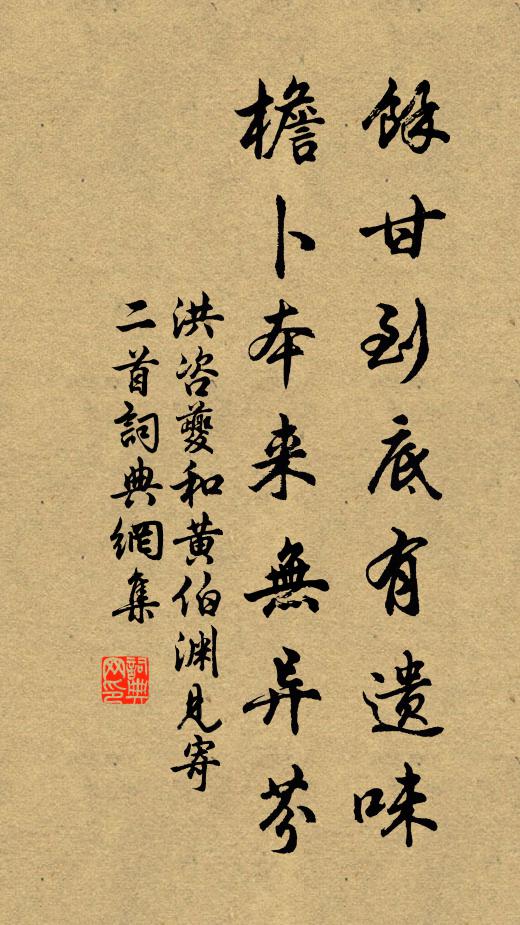 餘甘到底有遺味
檐卜本来無异芬
洪咨夔和黄伯渊見寄
二首詞典網集
詞典
网印